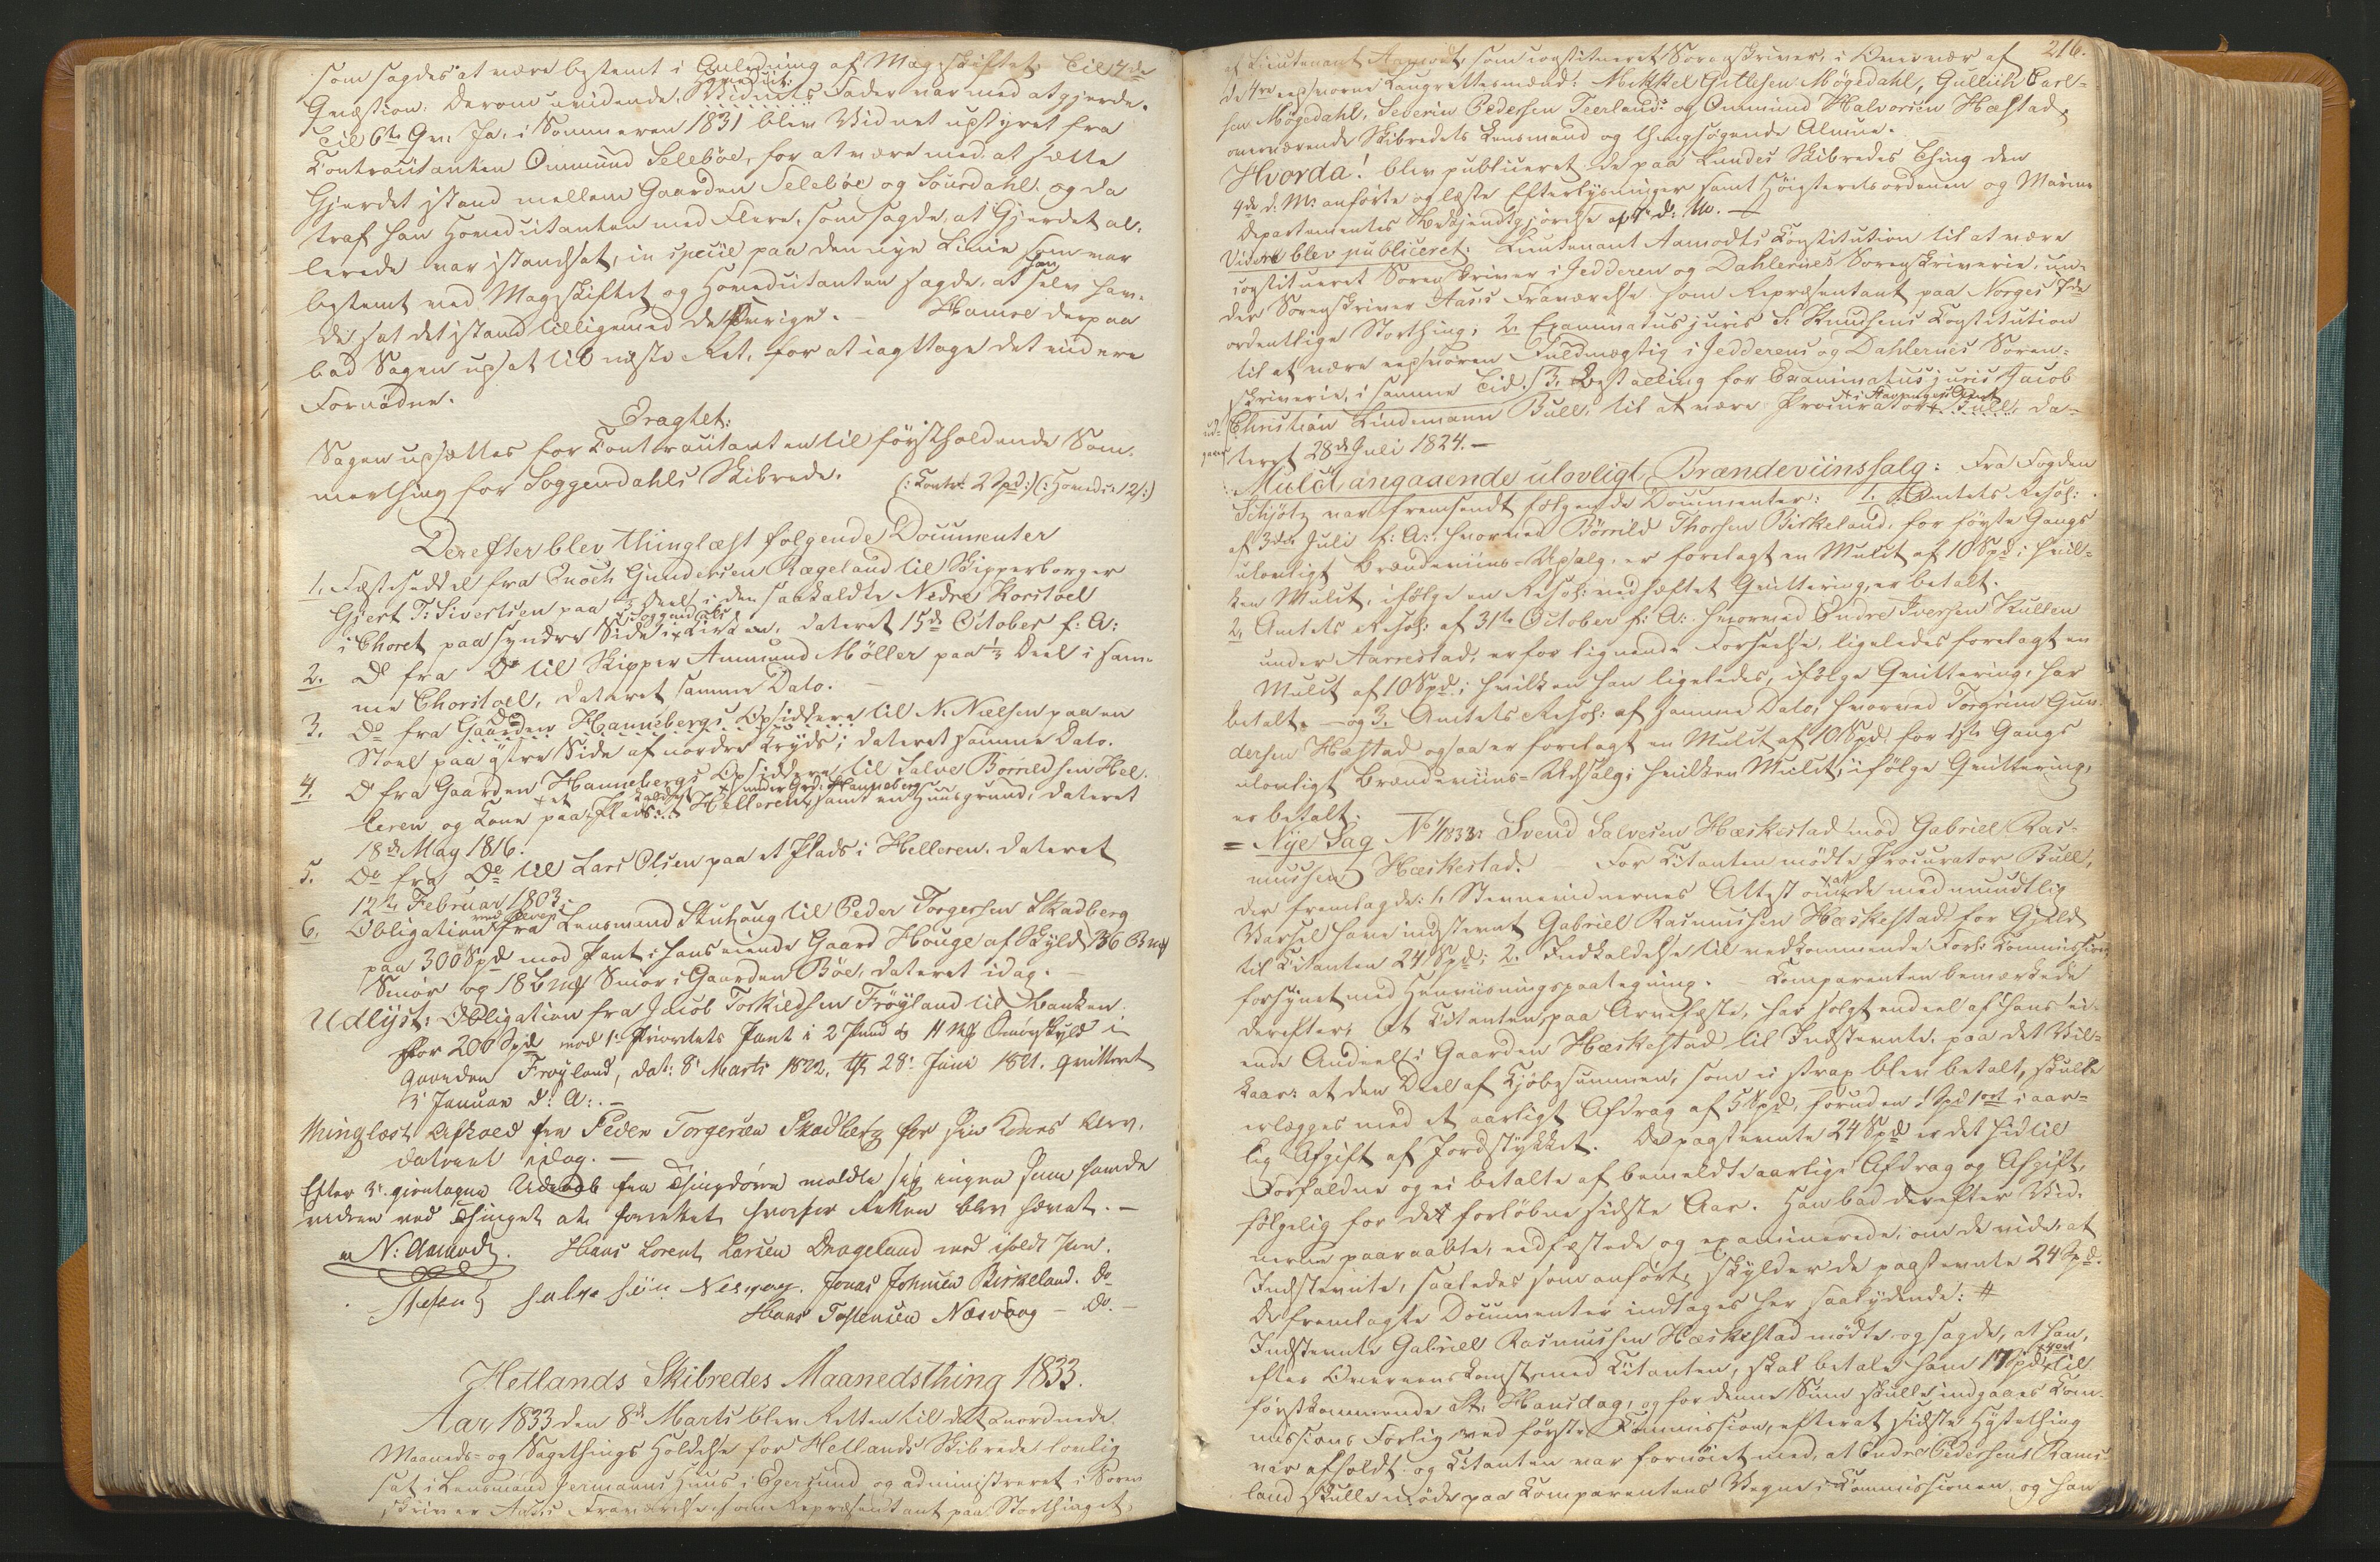 som sagdes at være bestemt i Anledning af Magskiftet. Til 4de
Qvæstion: Derom uvidende, Hovedcit: Vidnets Fader var med at gjerde.
Til 6te Qv: Ja, i Sommeren 1831 blev Vidnet udstyret fra
Contracitanten Ommund Selebøe, for at være med at sætte
Gjerdet istand mellem Gaarden Selebøe og Sourdahl og da
traf han Hovedcitanten med Flere, som sagde, at Gjerdet al-
lerede var istandsat, in specie paa den nye Linie som var
bestemt ved Magskiftet og Hovedcitanten sagde, at han selv hav-
de sat det istand tilligemed de Øvrige. — Hamre derpaa
bad Sagen udsat til næste Ret, for at iagttage det videre
Fornødne.
Eragtet:
Sagen udsættes for Contracitanten til førstholdende Som-
merthing for Soggendahls Skibrede. (: Contr: 2 Spd :) (: Hovedc: 12 / :)
Derefter blev thinglæst følgende Documenter
1. Fæsteseddel fra Enoch Gundersen Rægeland til Skipperborger
Gjert T: Sivertsen paa 1/3 Deel i den saakaldte Nedre Korstoel
i Choret paa syndre Side i Soggendals Kirken, dateret 15de October f: A:
2. Do fra Do til Skipper Ammund Møller paa 1/3 Deel i sam-
me Chorstoel, dateret samme Dato. —
3. Do fra Do Gaarden Hannebergs Opsiddere til N. Nielsen paa en
Stoel paa østre Side af nordre Kryds; dateret samme Dato.
4. Do fra Gaarden Hannebergs Opsiddere til Salve Borrildsen Hel-
leren og Kone paa et Plads kaldet Helleren under Grd: Hanneberg, samt en Huusgrund, dateret
18de May 1816.
5. Do fra Do til Lars Olsen paa et Plads i Helleren, dateret
12te Februar 1803.
6. Obligation fra Lensmand Stuhaug til Peder Torgersen Skadberg
paa 300 Spd mod Pant i hans eiende Gaard Houge af Skyld 36 Bmk
Smør og 18 Bmk Smør i Gaarden Böe, dateret idag. —
Udlyst: Obligation fra Jacob Torkildsen Frøyland til Banken
for 200 Spd mod 1. Prioritets Pant i 2 Pund & 11 Mk Smørskyld i
Gaarden Frøyland, dat: 8. Marts 1822, th 28. Juni 1821. qvitteret
3. Januar d: A: —
Thinglæst Afkald fra Peder Torgersen Skadberg for sin Kones Arv,
dateret idag. —
Efter 3. gientagne Udraab fra Thingdøren meldte sig ingen som havde
videre ved Thinget at forrette hvorfor Retten blev hævet. —
N: Aamodt. Hans Lorents Larsen Drageland med iholdt Pen.
Salve Nesvaag. Jonas Johnsen Birkeland. do
Hans Tostensen Næsvaag — do. —
Hetlands Skibredes Maanedsthing 1833.
Aar 1833 den 8de Marts blev Retten til det anordnede
Maaneds- og Sagethings Holdelse for Hetlands Skibrede lovlig
sat i Lensmand Jermanns Huus i Egersund og administreret i Soren-
skriver Aas's Fraværelse som Repræsentant paa Storthinget,
216.
af Lieutenant Aamodt, som constitueret Sorenskriver, i Overvær af
de 4re eedsvorne Laugrettesmænd: Mikkel Gitlesen Møgedahl, Gullich Carl-
sen Møgedahl, Severin Pedersen Teerland og Ommund Halvorsen Hæstad,
overværende Skibredets Lensmand og thingsøgende Almue.
Hvorda! blev publiceret de paa Lundes Skibredes Thing den
4de d: M: anførte oplæste Efterlysninger samt Høiesteretsordenen og Marine
Departementets Bekjendtgjørelse af d: M. —
Videre blev publiceret: Lieutenant Aamodts Constitution til at være
constitueret Sorenskriver i Jedderen og Dahlernes Sorenskriverie, un-
der Sorenskriver Aas's Fraværelse som Repræsentant paa Norges 7de
ordentlige Storthing; 2. Examinatus juris S. Knudsens Constitution
til at være eedsvoren Fuldmægtig i Jedderens og Dahlernes Soren-
skriverie, i samme Tid; 3. Bestalling for Examinatus juris Jacob
Christian Lindemann Bull, til at være Procurator i Stavanger Amt Bull, da-
teret 28de Juli 1824. —
Mulct angaaende ulovligt Brændeviinssalg: Fra Fogden
Schjøtz var fremsendt følgende Documenter: 1. Amtets Resol:
af 3die Juli f: A: hvorved Børrild Thorsen Birkeland, for første Gangs
ulovligt Brændeviins-Udsalg, er forelagt en Mulct af 10 Spd; hvil-
ken Mulct, ifølge en Resol: vedhæftet Qvittering, er betalt.
2. Amtets Resol: af 31te October f: A: hvorved Endre Iversen Kullen
under Aarrestad, er for lignende Forseelse, ligeledes forelagt en
Mulct af 10 Spd; hvilken han ligeledes, ifølge Qvittering, har
betalt. — og 3. Amtets Resol: af samme Dato, hvorved Torgrim Gun-
dersen Hæstad ogsaa er forelagt en Mulct af 10 Spd for 1ste Gangs
ulovligt Brændeviins-Udsalg; hvilken Mulct, ifølge Qvittering,
er betalt.
= Nye Sag No 1/1833: Svend Salvesen Hæskestad mod Gabriel Ras-
mussen Hæskestad. — For Citanten mødte Procurator Bull,
der fremlagde: 1. Stevnevidnernes Attest om at de med mundtlig
Varsel have indstevnt Gabriel Rasmussen Hæskestad for Gjeld
til Citanten 24 Spd; 2. Indkaldelse til vedkommende Forl: Commission,
forsynet med Henviisningspaategning. — Comparenten bemærkede
derefter: At Citanten, paa Arvefæste, har solgt endeel af hans ei-
ende Andeel i Gaarden Hæskestad til Indstevnte, paa det Vil-
kaar: at den Deel af Kjøbesummen, som ei strax blev betalt, skulle
erlægges med et aarligt Afdrag af 5 Spd, foruden 1 Spd 1 ort i aar-
lig Afgift af Jordstykket. De paastevnte 24 Spd er det hidtil
Forfaldne og ei betalte af bemeldte aarlige Afdrag og Afgift,
følgelig for det forløbne sidste Aar. Han bad derefter Vid-
nerne paaraabte, eedfæstede og examinerede, om de vide, at
Indstevnte, saaledes som anført, skylder de paastevnte 24 Spd.
De fremlagte Documenter indtages her saalydende: #
Indstevnte Gabriel Rasmussen Hæskestad mødte og sagde, at han,
efter Overeenskomst med Citanten, skal betale ham 17 Spd 4 ort til
førstkommende St: Hansdag, og for denne Sum skulle indgaaes Com-
missions Forlig ved første Commission, efterat sidste Høstething
var afholdt og Citanten var fornøiet med, at Endre Pedersens Rams-
land skulle møde paa Comparentens Vegne i Commissionen og han